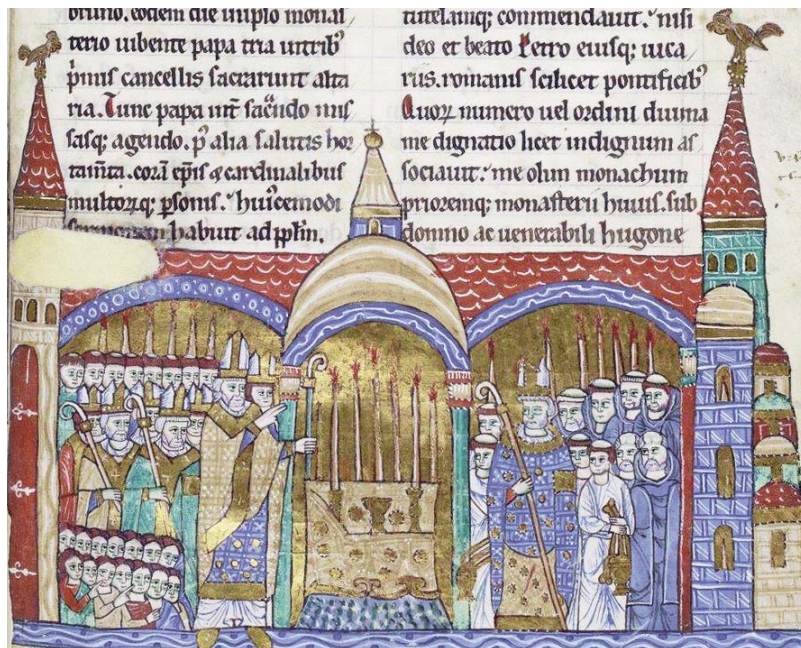 bruno. eodem die in ipso monas
terio iubente papa tria in tribꝰ
p̄mis cancellis sacrarunt alta
ria. Tunc papa int̄ sac̄ndo mis
sasq; agendo. p̄ alia salutis hor
tam̄ta. corā ep̄is & cardinalibus
multoꝝq; p̱sonis. huiꝰcemodi
habuit ad pp̄lm.
tutelamq; commendauit. nisi
deo et beato Petro eiusq; uica
riis. romanis scilicet pontificibꝰ
Quoꝝ numero uel ordini diuina
me dignatio licet indignum as
sociauit. me olim monachum
prioremq; monasterii huius. sub
domno ac uenerabili hugone